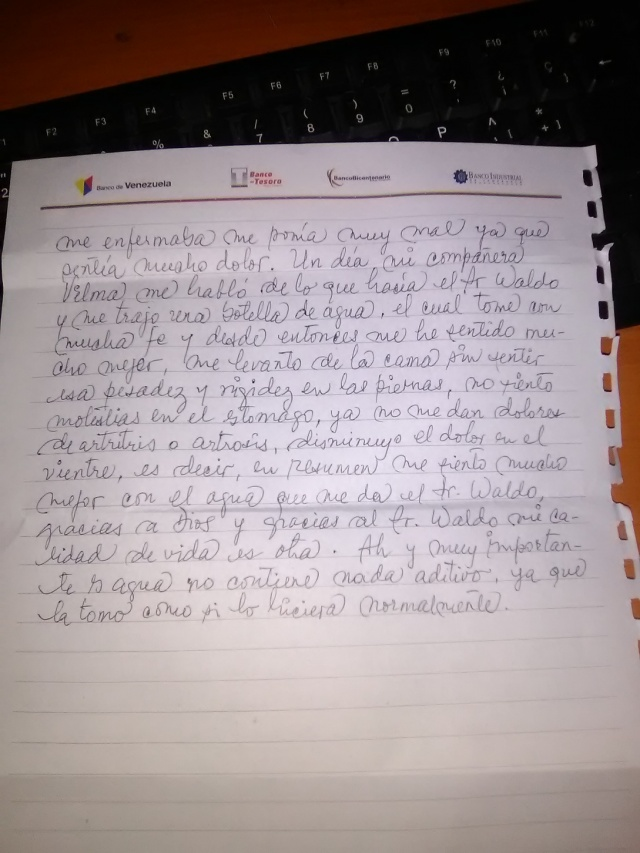 F2 F3 F4 F5 F6 F7 F8 F9 F10 F11 F12
% & / 7 ( 8 ) 9 = 0 ? ' ¿ ¡ Ç }
2 O P ^ [ * + ]
Banco de Venezuela Banco del Tesoro BancoBicentenario BANCO INDUSTRIAL
me enfermaba me ponía muy mal ya que
sentía mucho dolor. Un día mi compañera
Vilma me habló de lo que hacía el Sr Waldo
y me trajo una botella de agua, el cual tome con
mucha fe y desde entonces me he sentido mu-
cho mejor, me levanto de la cama sin sentir
esa pesadez y rigidez en las piernas, no siento
molestias en el estomago, ya no me dan dolores
de artritris o artrosis, disminuyo el dolor en el
vientre, es decir, en resumen me siento mucho
mejor con el agua que me da el Sr. Waldo,
gracias a Dios y gracias al Sr. Waldo mi ca-
lidad de vida es otra. Ah y muy importan-
te agua no contiene nada aditivo, ya que
la tomo como si lo hiciera normalmente.